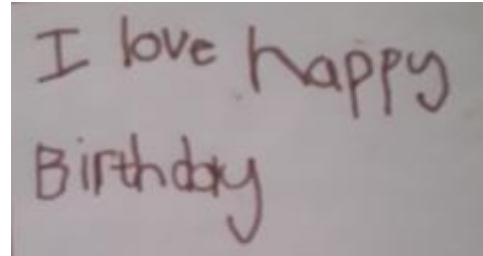 I love happy
Birthday